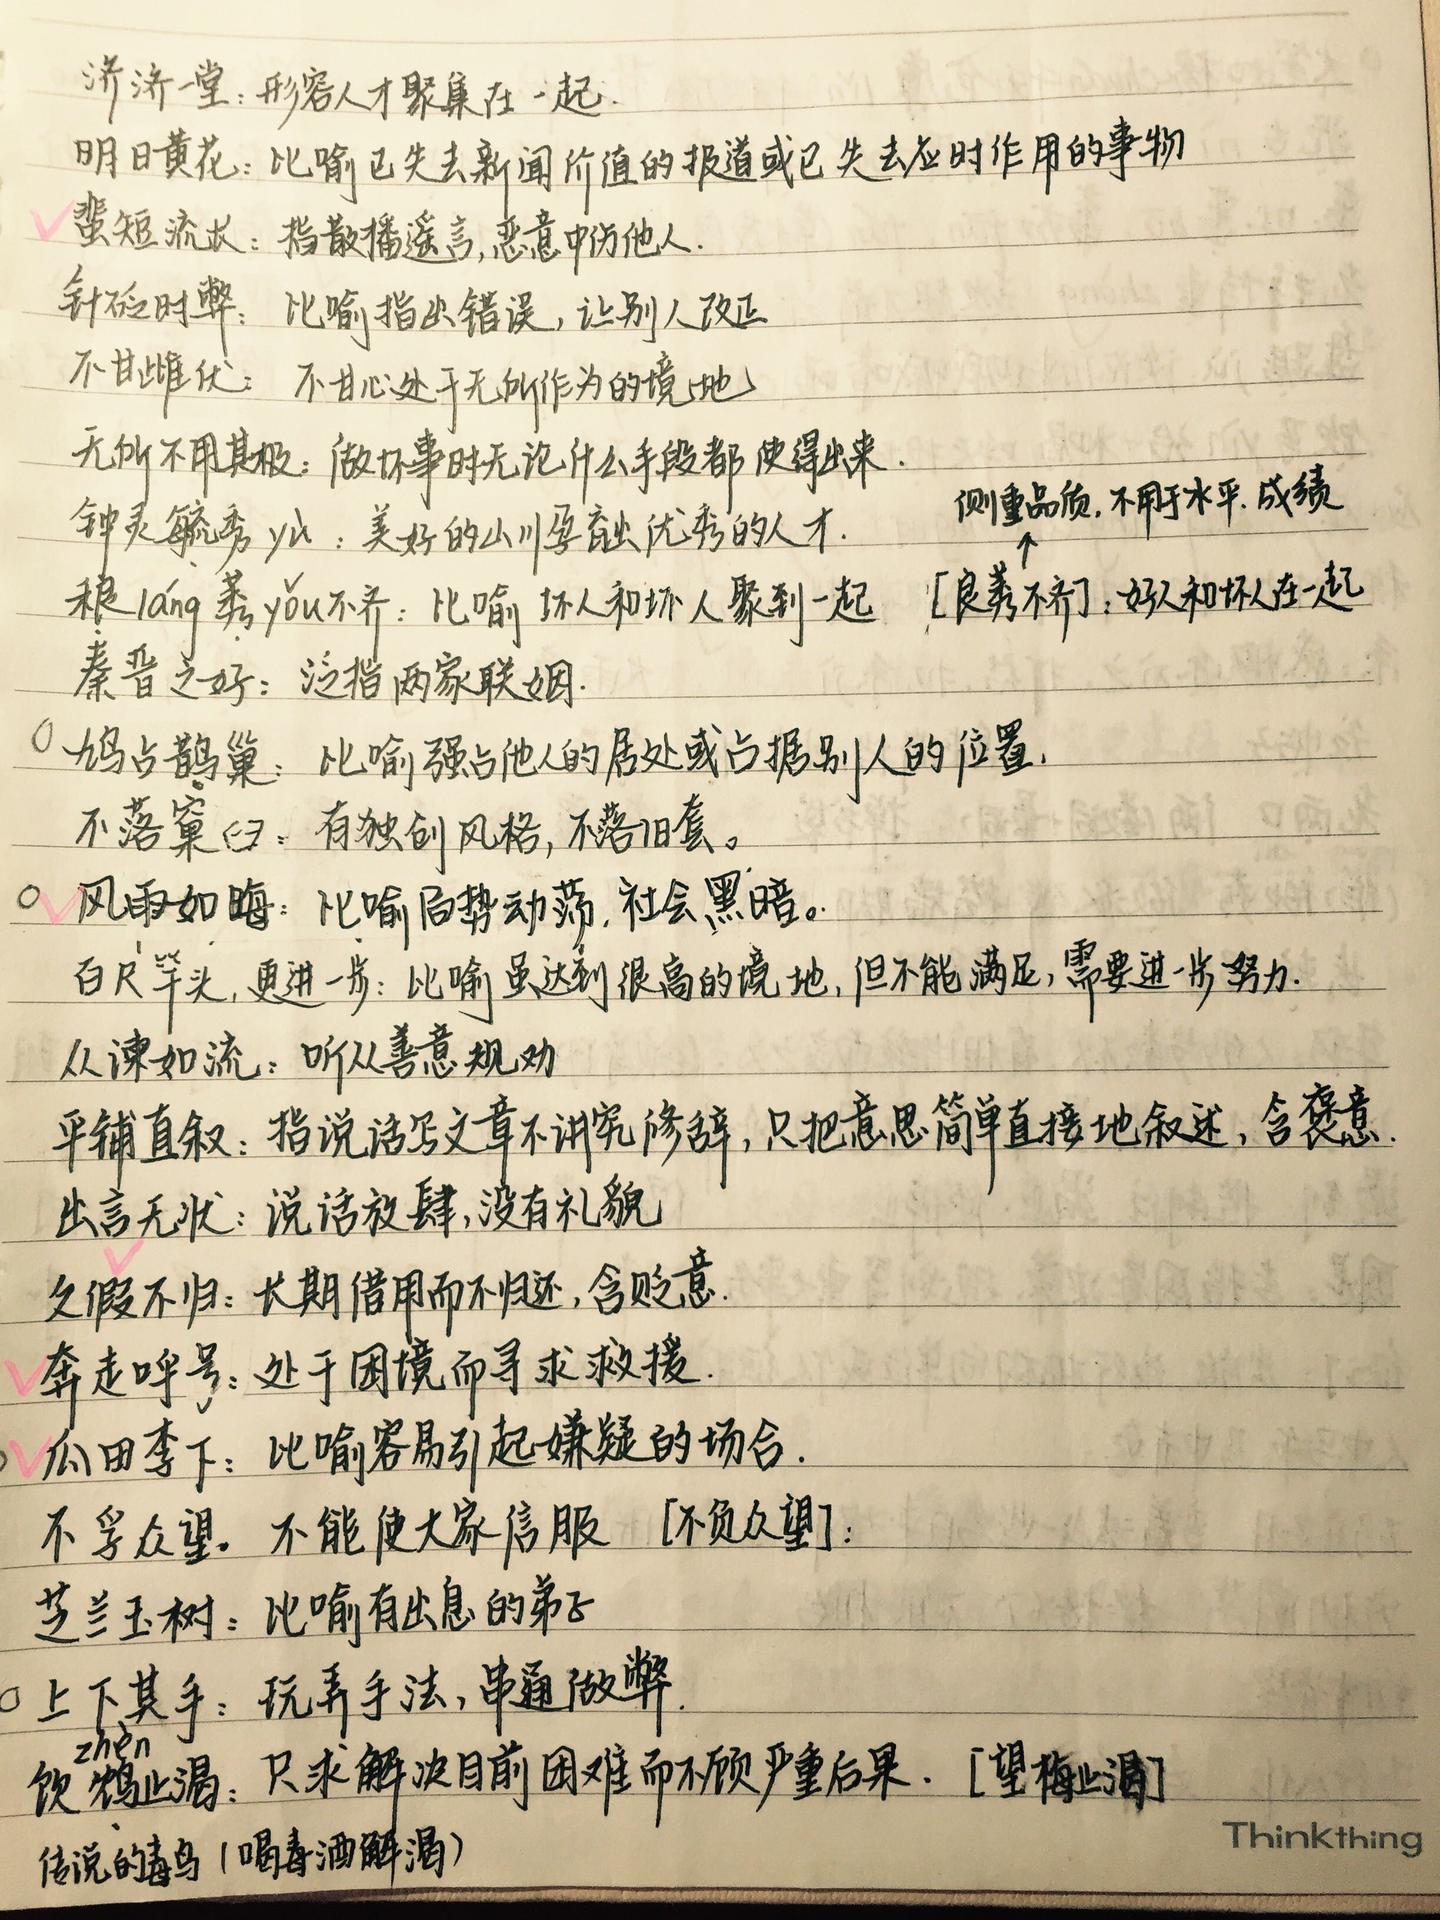 济济一堂：形容人才聚集在一起.
明日黄花：比喻已失去新闻价值的报道或已失去应时作用的事物
蜚短流长：指散播谣言,恶意中伤他人.
针砭时弊：比喻指出错误,让别人改正
不甘雌伏：不甘心处于无所作为的境地
无所不用其极：做坏事时无论什么手段都使得出来.
侧重品质.不用于水平.成绩
钟灵毓秀yù：美好的山川孕育出优秀的人才.
↑
稂láng莠yǒu不齐：比喻坏人和坏人聚到一起 [良莠不齐]：好人和坏人在一起
秦晋之好：泛指两家联姻.
鸠占鹊巢：比喻强占他人的居处或占据别人的位置.
不落窠臼：有独创风格,不落旧套。
风雨如晦：比喻局势动荡,社会黑暗。
百尺竿头,更进一步：比喻虽达到很高的境地,但不能满足,需要进一步努力.
从谏如流：听从善意规劝
平铺直叙：指说话写文章不讲究修辞,只把意思简单直接地叙述,含褒意.
出言无状：说话放肆,没有礼貌
久假不归：长期借用而不归还,含贬意.
奔走呼号：处于困境而寻求救援.
瓜田李下：比喻容易引起嫌疑的场合.
不孚众望。不能使大家信服 [不负众望]：
芝兰玉树：比喻有出息的弟子
上下其手：玩弄手法,串通做弊.
zhèn
饮鸩止渴：只求解决目前困难而不顾严重后果. [望梅止渴]
传说的毒鸟(喝毒酒解渴)
Thinkthing